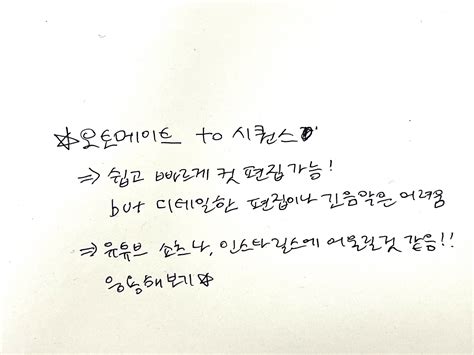 ☆오토메이트 to 시퀀스
⇒ 쉽고 빠르게 컷 편집가능!
but 디테일한 편집이나 긴음악은 어려움
⇒ 유튜브 쇼츠나, 인스타릴스에 어울릴것 같음!!
응용해보기☆